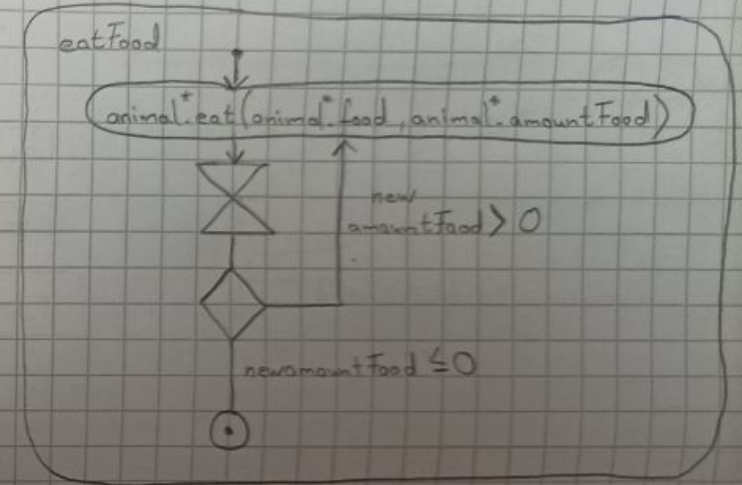 eatFood
animal*.eat(animal*.food, animal*.amountFood)
new
amountFood > 0
newamountFood ≤ 0